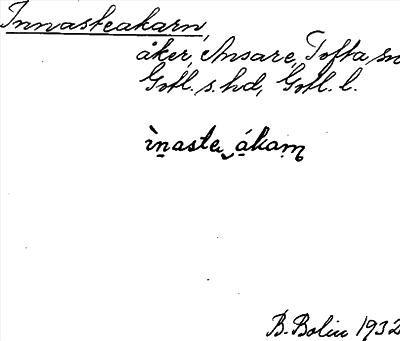 Innasteakarn,
åker, Ansare, Tofta sn
Gotl. s. hd, Gotl. l.
ìnaste ákaɳ
B. Bolin 1932